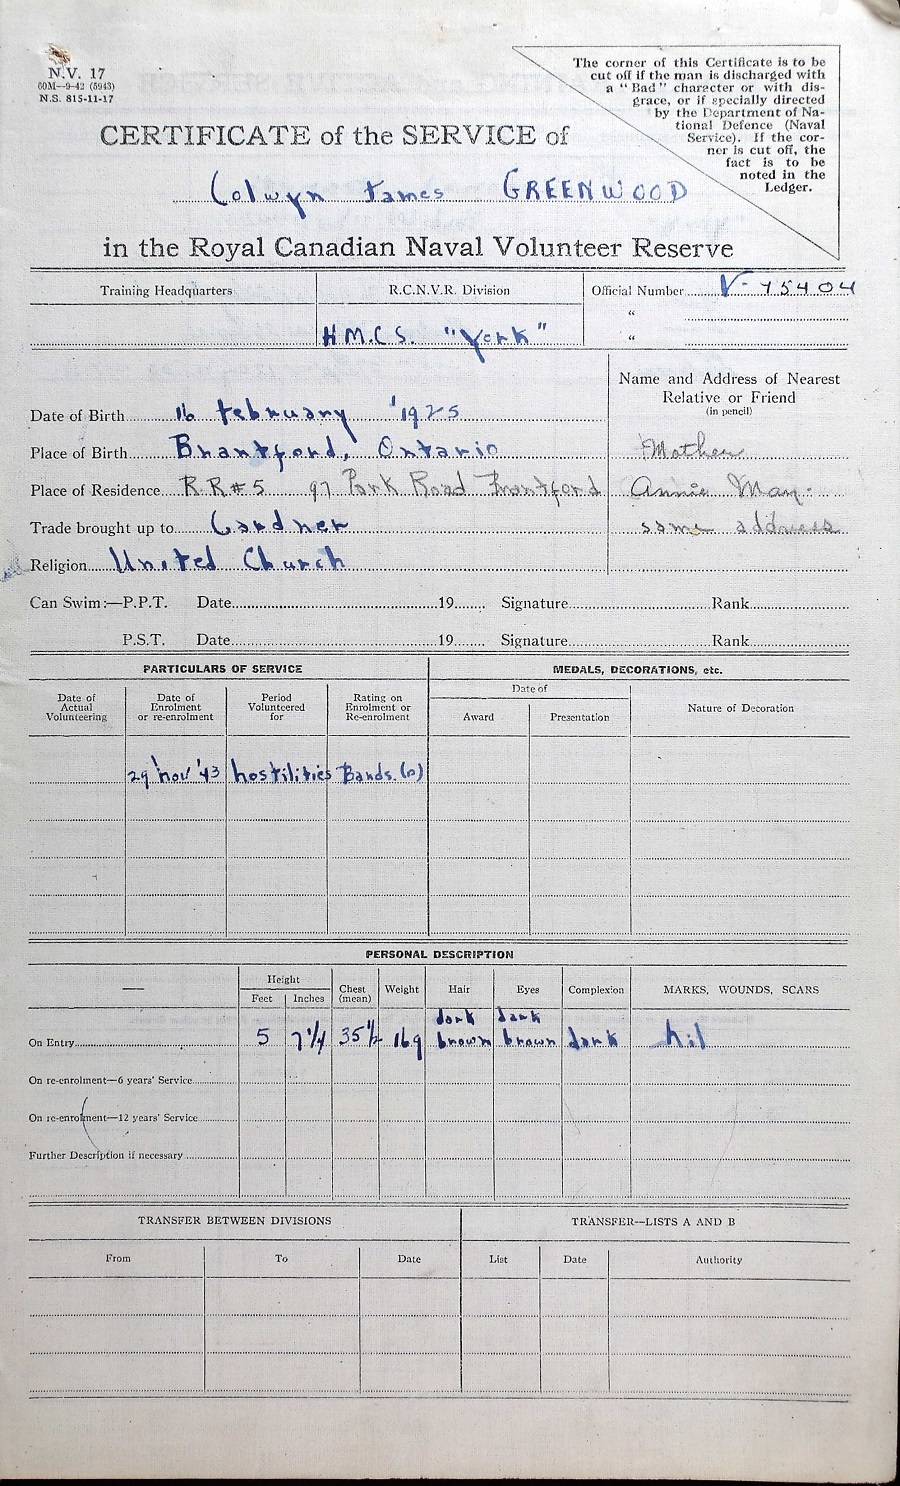 N.V. 17
60M—9-42 (5943)
N.S. 815-11-17
The corner of this Certificate is to be
cut off if the man is discharged with
a "Bad" character or with dis-
grace, or if specially directed
by the Department of Na-
tional Defence (Naval
Service). If the cor-
ner is cut off, the
fact is to be
noted in the
Ledger.
CERTIFICATE of the SERVICE of
Colwyn James GREENWOOD
in the Royal Canadian Naval Volunteer Reserve
Training Headquarters
R.C.N.V.R. Division
H.M.C.S. "York"
Official Number V-75404
"
"
Name and Address of Nearest
Relative or Friend
(in pencil)
Mother
Annie May.
same address
Date of Birth 16 february '1925
Place of Birth Brantford, Ontario
Place of Residence R.R#5 97 Park Road Brantford
Trade brought up to Gardner
Religion United Church
Can Swim:—P.P.T. Date 19 Signature Rank
P.S.T. Date 19 Signature Rank
PARTICULARS OF SERVICE
MEDALS, DECORATIONS, etc.
Date of Actual Volunteering
Date of Enrolment or re-enrolment
Period Volunteered for
Rating on Enrolment or Re-enrolment
Date of
Award
Presentation
Nature of Decoration
29 nov '43 hostilities Bands.(o)
PERSONAL DESCRIPTION
—
Height
Feet Inches
Chest (mean)
Weight
Hair
Eyes
Complexion
MARKS, WOUNDS, SCARS
On Entry 5 7 1/4 35 1/2 169 dark brown dark brown dark nil
On re-enrolment—6 years' Service
On re-enrolment—12 years' Service
Further Description if necessary
TRANSFER BETWEEN DIVISIONS
TRANSFER—LISTS A AND B
From To Date List Date Authority